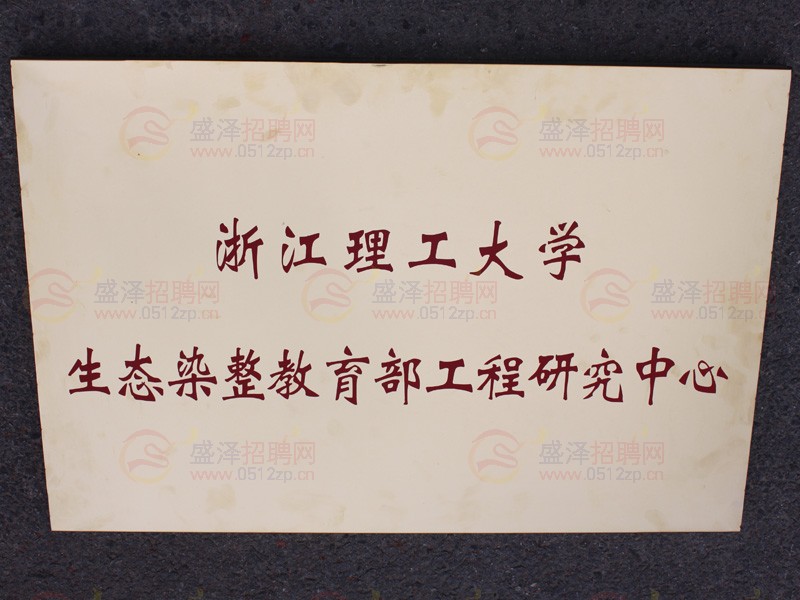 盛泽招聘网 盛泽招聘网
www.0512zp.cn www.0512zp.cn
浙江理工大学
盛泽招聘网 盛泽招聘网 盛泽招聘网
www.0512zp.cn www.0512zp.cn www.0512zp.cn
生态染整教育部工程研究中心
盛泽招聘网 盛泽招聘网
www.0512zp.cn www.0512zp.cn